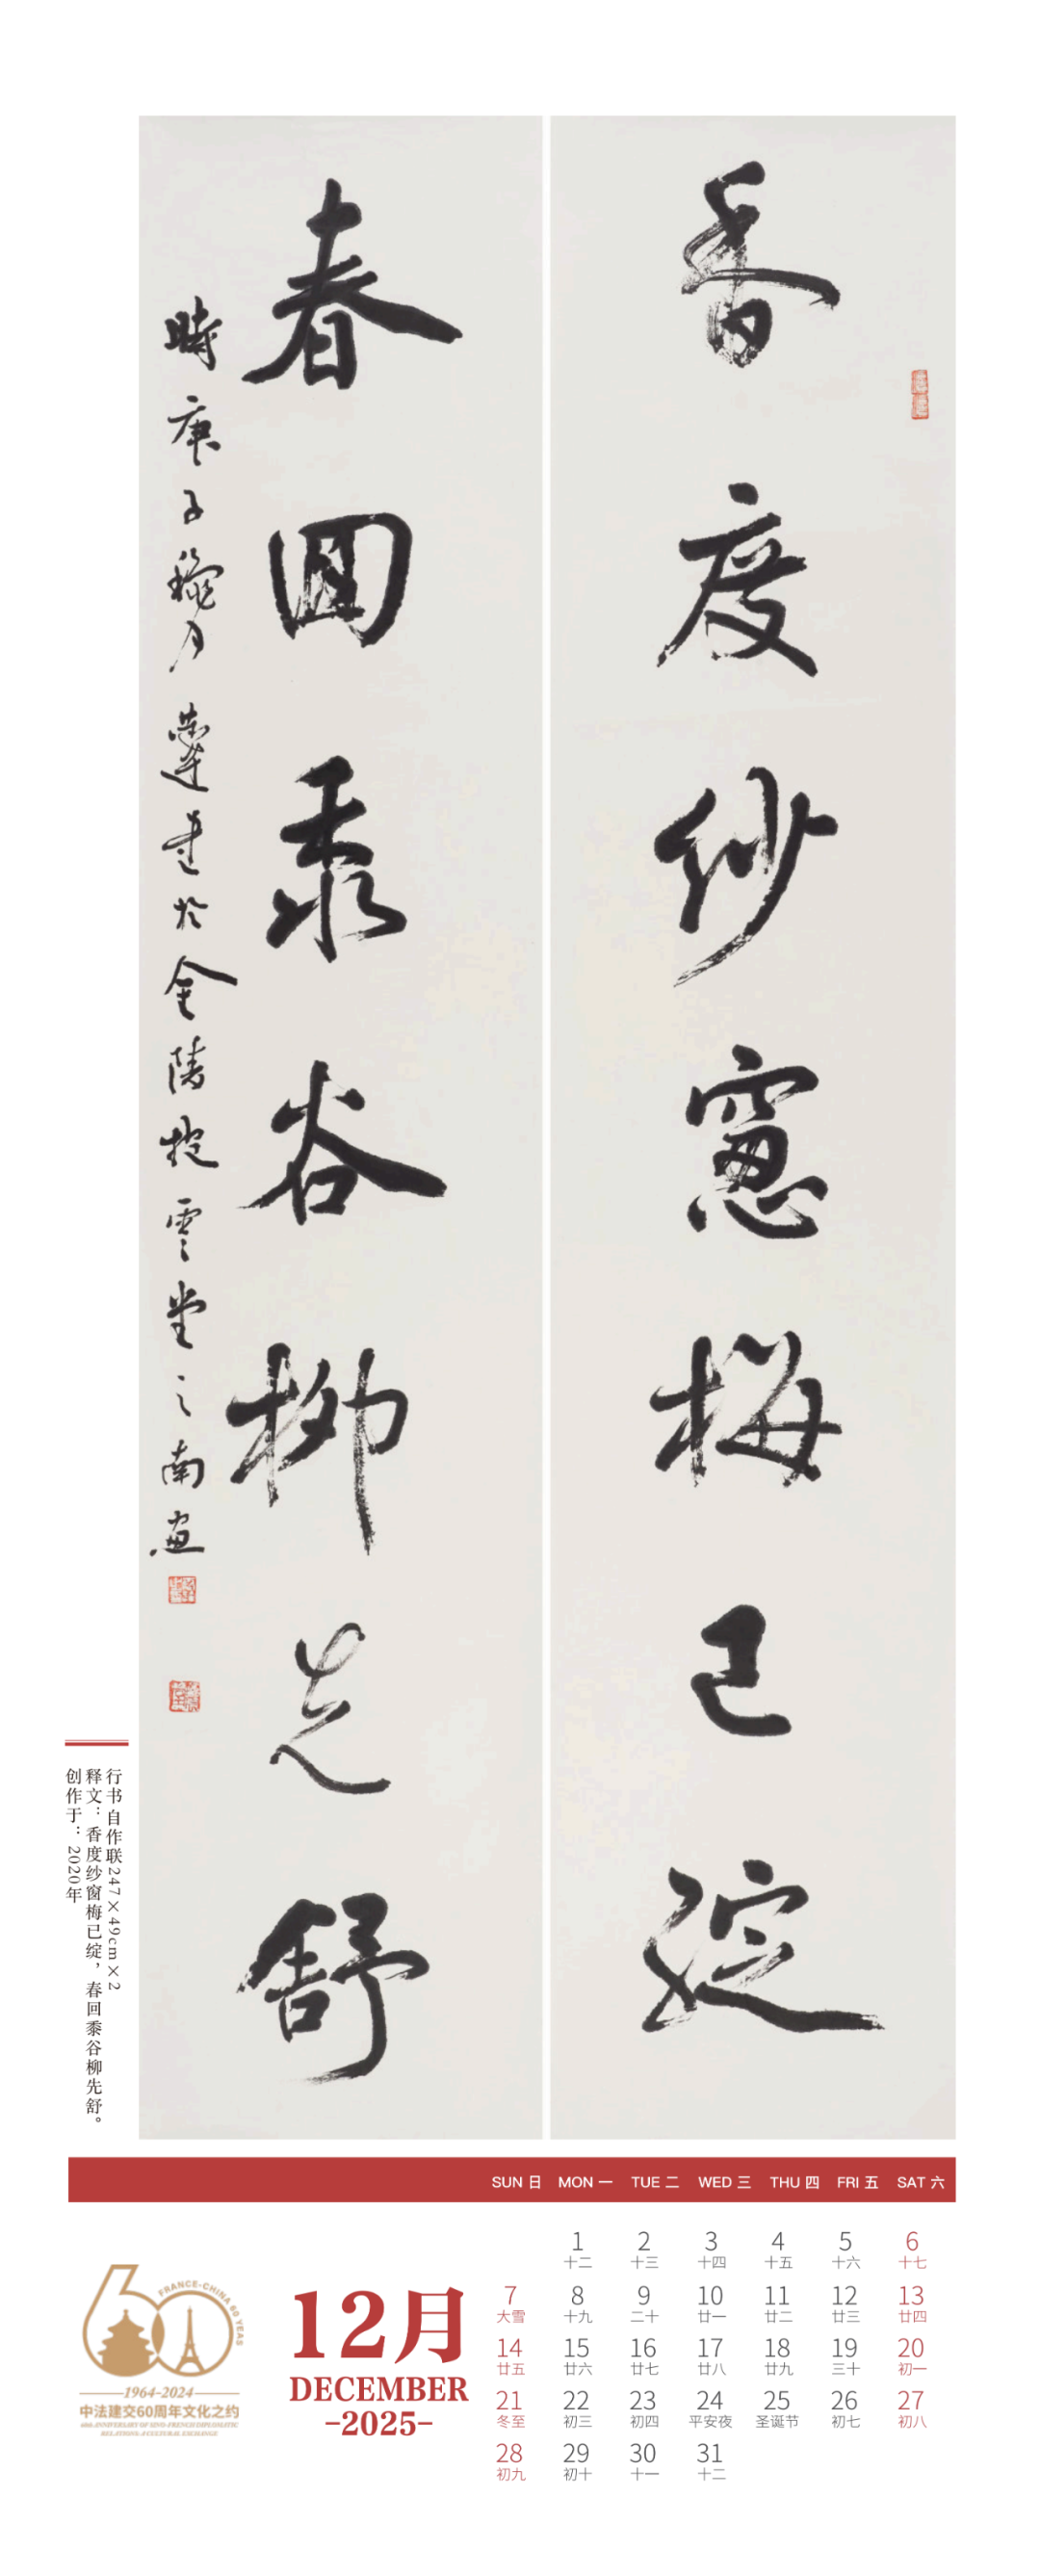 香度纱窗梅已綻
春回黍谷柳先舒
時庚子穐月建達於金陵挹雲堂之南窗
行书自作联247×49cm×2
释文：香度纱窗梅已绽，春回黍谷柳先舒。
创作于：2020年
SUN 日 MON 一 TUE 二 WED 三 THU 四 FRI 五 SAT 六
1 2 3 4 5 6
十二 十三 十四 十五 十六 十七
7 8 9 10 11 12 13
大雪 十九 二十 廿一 廿二 廿三 廿四
14 15 16 17 18 19 20
廿五 廿六 廿七 廿八 廿九 三十 初一
21 22 23 24 25 26 27
冬至 初三 初四 平安夜 圣诞节 初七 初八
28 29 30 31
初九 初十 十一 十二
12月
DECEMBER
-2025-
60
FRANCE-CHINA 60 YEAS
1964-2024
中法建交60周年文化之约
60th ANNIVERSARY OF SINO-FRENCH DIPLOMATIC
RELATIONS: A CULTURAL EXCHANGE